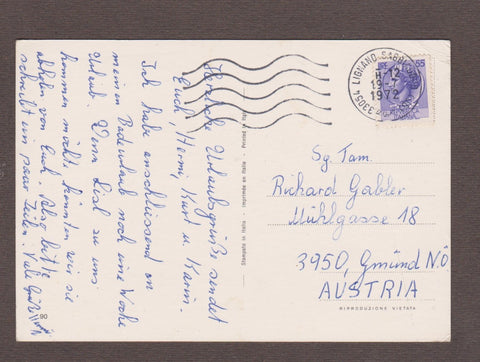 Herzliche Urlaubsgrüße sendet
Euch, Hermi, Kurt u. Karin.
Ich habe anschliessend an
meinen Badeurlaub noch eine Woche
Urlaub. Wenn Lisl zu uns
kommen möcht, könnten wir sie
abholen von Euch. Also bitte
schreibt ein paar Zeilen. Viele
90
Stampato in Italia - Imprimé en Italie - Printed in Italy
33054 LIGNANO SABB
H-12
1972
55
Sg. Fam.
Richard Gabler
Mühlgasse 18
3950, Gmünd N.Ö
AUSTRIA
RIPRODUZIONE VIETATA